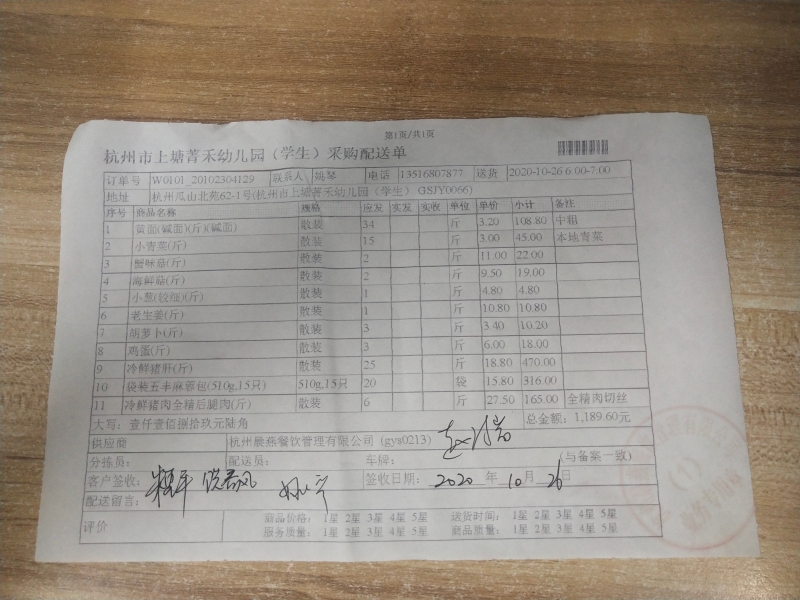 第1页/共1页
杭州市上塘菁禾幼儿园（学生）采购配送单
订单号 W0101_20102304129 联系人 姚琴 电话 13516807877 送货 2020-10-26 6:00-7:00
地址 杭州瓜山北苑62-1号(杭州市上塘菁禾幼儿园（学生） GSJY0066)
序号 商品名称 规格 应发 实发 实收 单位 单价 小计 备注
1 黄面(碱面)(斤)(碱面) 散装 34 斤 3.20 108.80 中粗
2 小青菜(斤) 散装 15 斤 3.00 45.00 本地青菜
3 蟹味菇(斤) 散装 2 斤 11.00 22.00
4 海鲜菇(斤) 散装 2 斤 9.50 19.00
5 小葱(较细)(斤) 散装 1 斤 4.80 4.80
6 老生姜(斤) 散装 1 斤 10.80 10.80
7 胡萝卜(斤) 散装 3 斤 3.40 10.20
8 鸡蛋(斤) 散装 3 斤 6.00 18.00
9 冷鲜猪肝(斤) 散装 25 斤 18.80 470.00
10 袋装五丰麻蓉包(510g,15只) 510g,15只 20 袋 15.80 316.00
11 冷鲜猪肉全精后腿肉(斤) 散装 6 斤 27.50 165.00 全精肉切丝
大写：壹仟壹佰捌拾玖元陆角 总金额：1,189.60元
供应商 杭州晨燕餐饮管理有限公司（gys0213）
分拣员： 配送员： 车牌： （与备案一致）
客户签收： 签收日期： 2020 年 10 月 26 日
配送留言：
评价 商品价格： 1星 2星 3星 4星 5星 送货时间： 1星 2星 3星 4星 5星
服务质量： 1星 2星 3星 4星 5星 商品质量： 1星 2星 3星 4星 5星